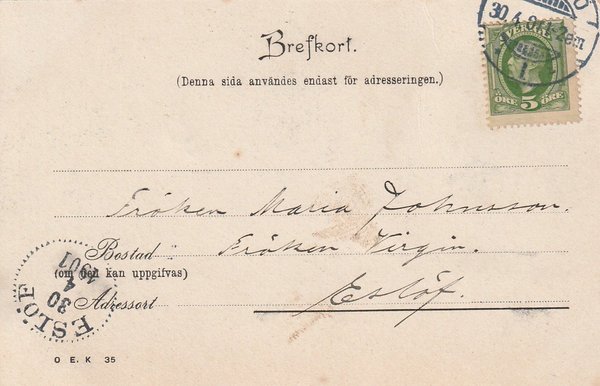 Brefkort.
(Denna sida användes endast för adresseringen.)
30.4
SVERIGE
ÖRE 5 ÖRE
Fröken Maria Johnsson.
Bostad Fröken Virgin.
(om den kan uppgifvas)
Adressort Eslöf.
ESLÖF
30
4
1901
O E. K 35